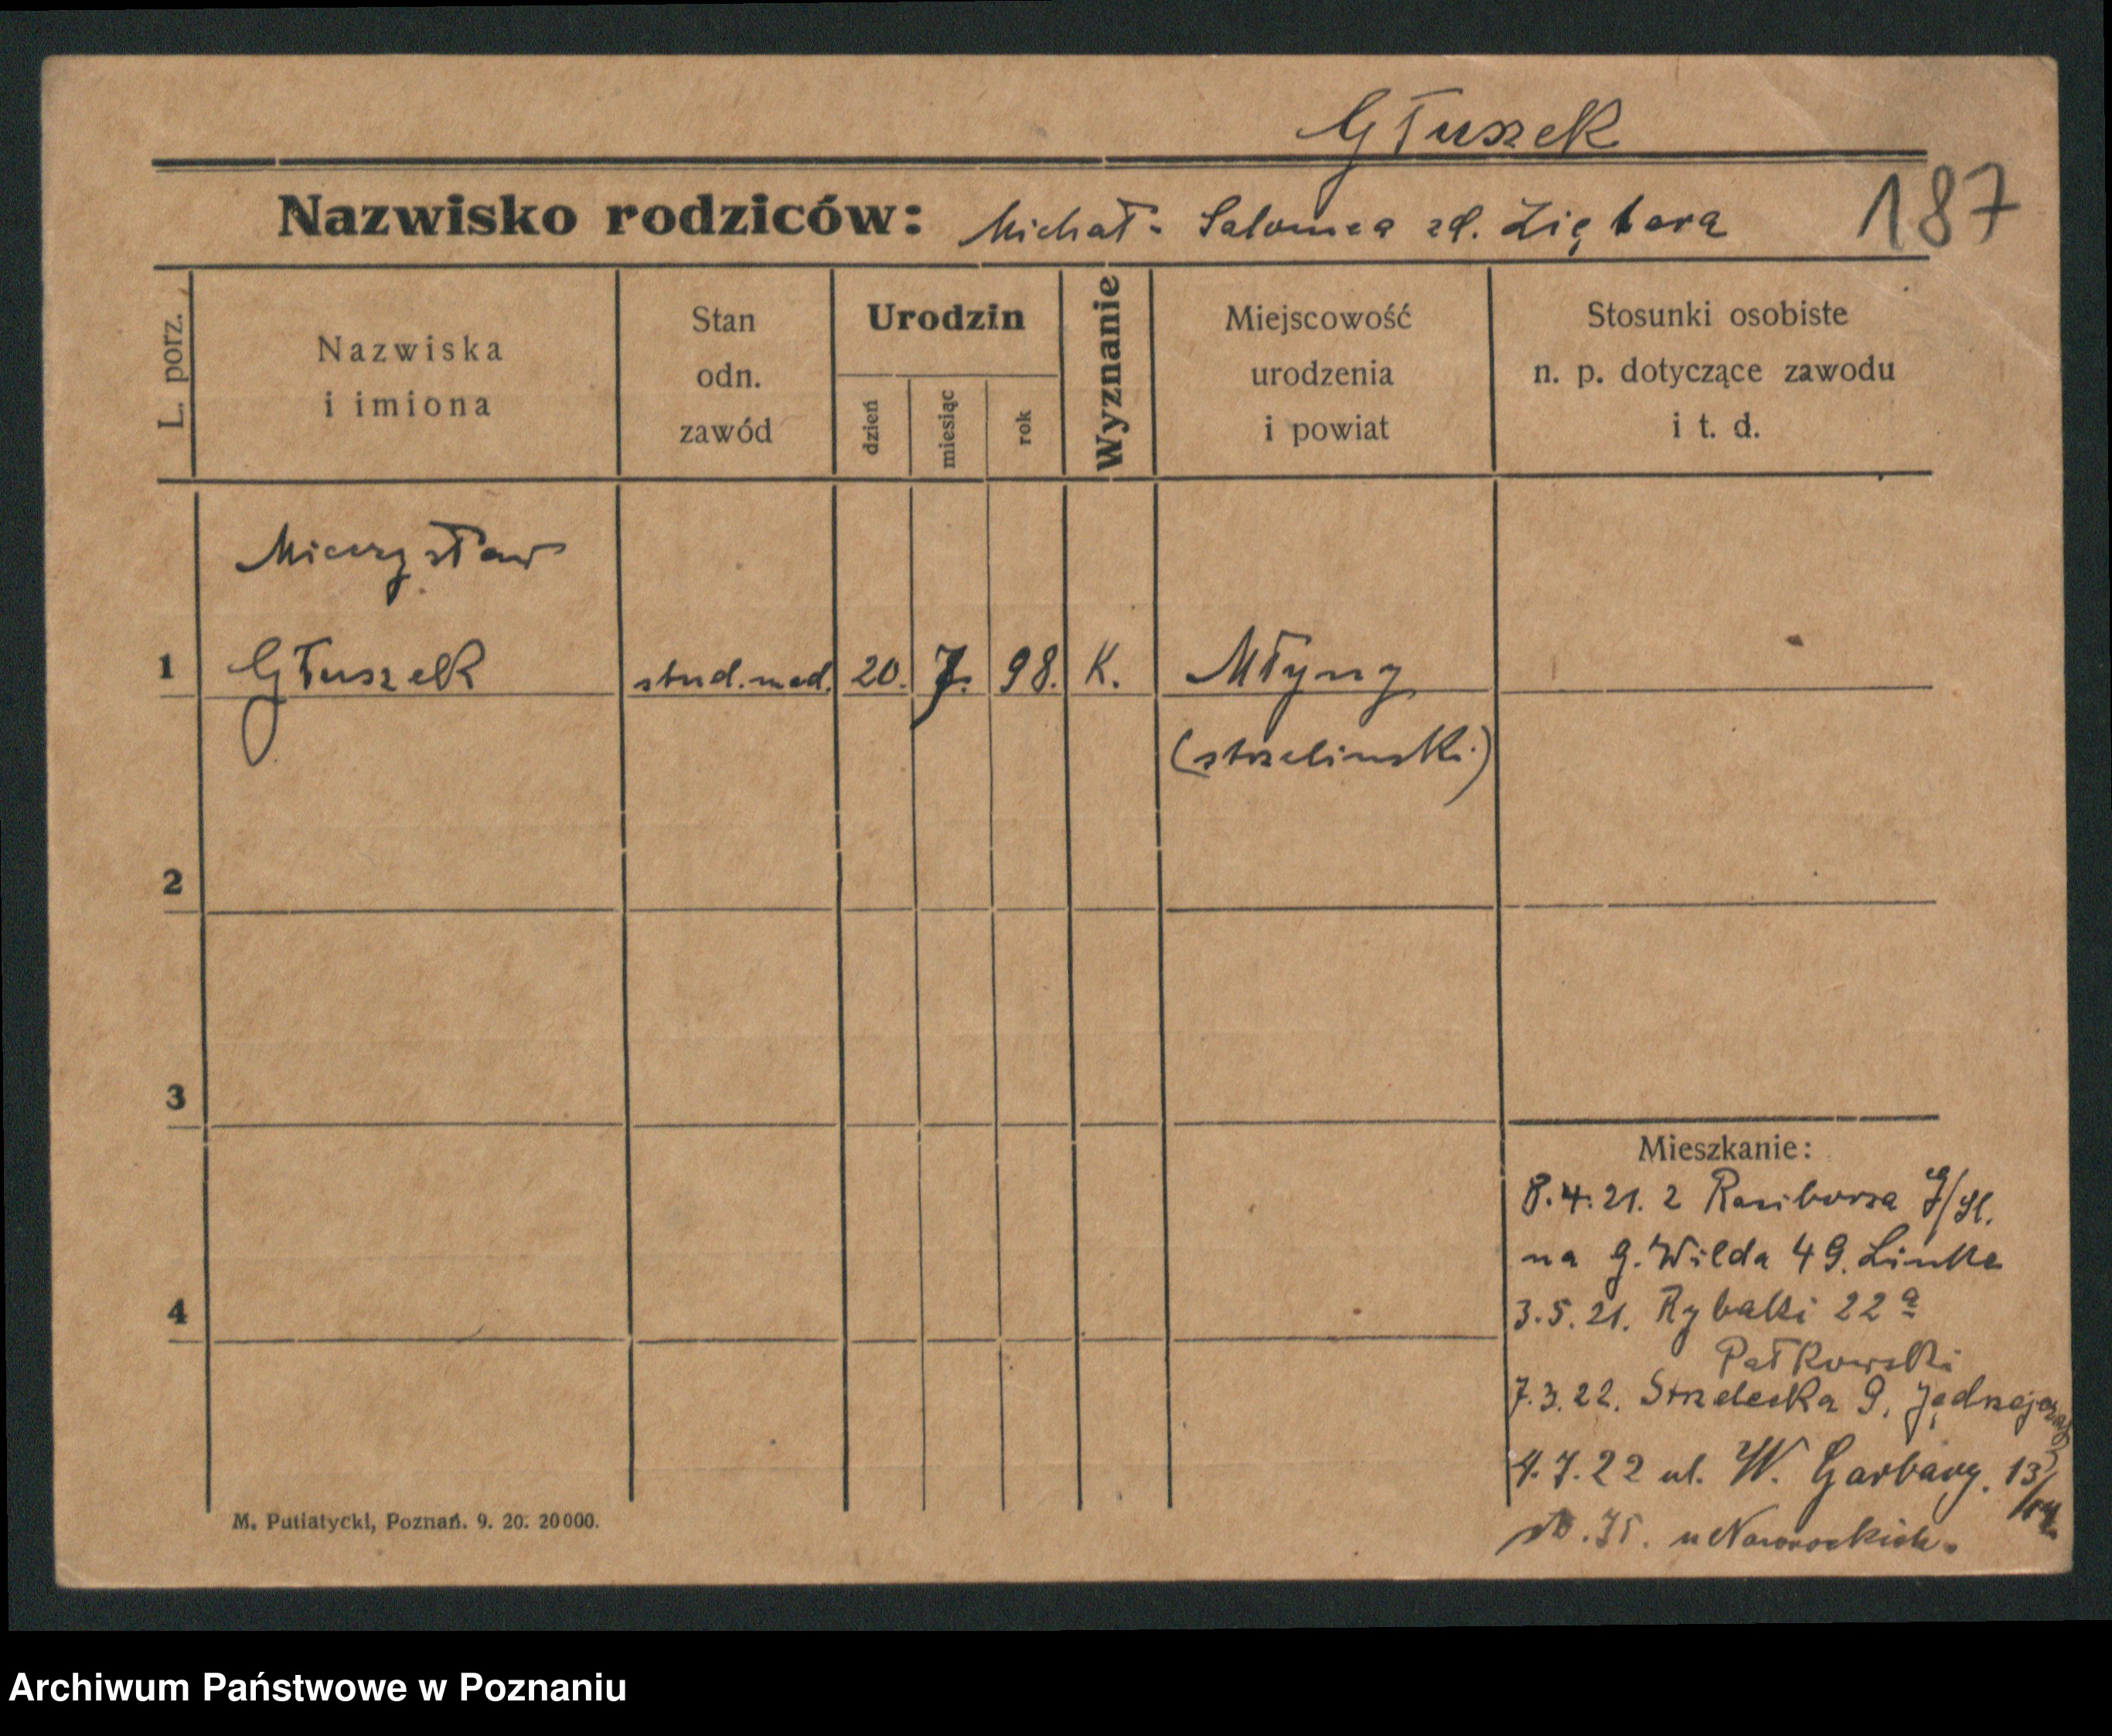 Głuszek
Nazwisko rodziców: Michał - Salomea zd. Ziętara
187
L. porz.
Nazwiska
i imiona
Stan
odn.
zawód
Urodzin
dzień
miesiąc
rok
Wyznanie
Miejscowość
urodzenia
i powiat
Stosunki osobiste
n. p. dotyczące zawodu
i t. d.
Mieczysław
1 Głuszek stud. med. 20. 7. 98. K. Młyny
(strzelinski)
2
3
4
Mieszkanie:
8.4.21. z Raciborza G/Śl.
na G. Wilda 49. Linke
3.5.21. Rybaki 22 a
Pałkowski
7.3.22. Strzelecka 9.
4.7.22 ul. W. Garbary. 13/
u Nawrockich.
M. Putiatycki, Poznań. 9. 20. 20000.
Archiwum Państwowe w Poznaniu